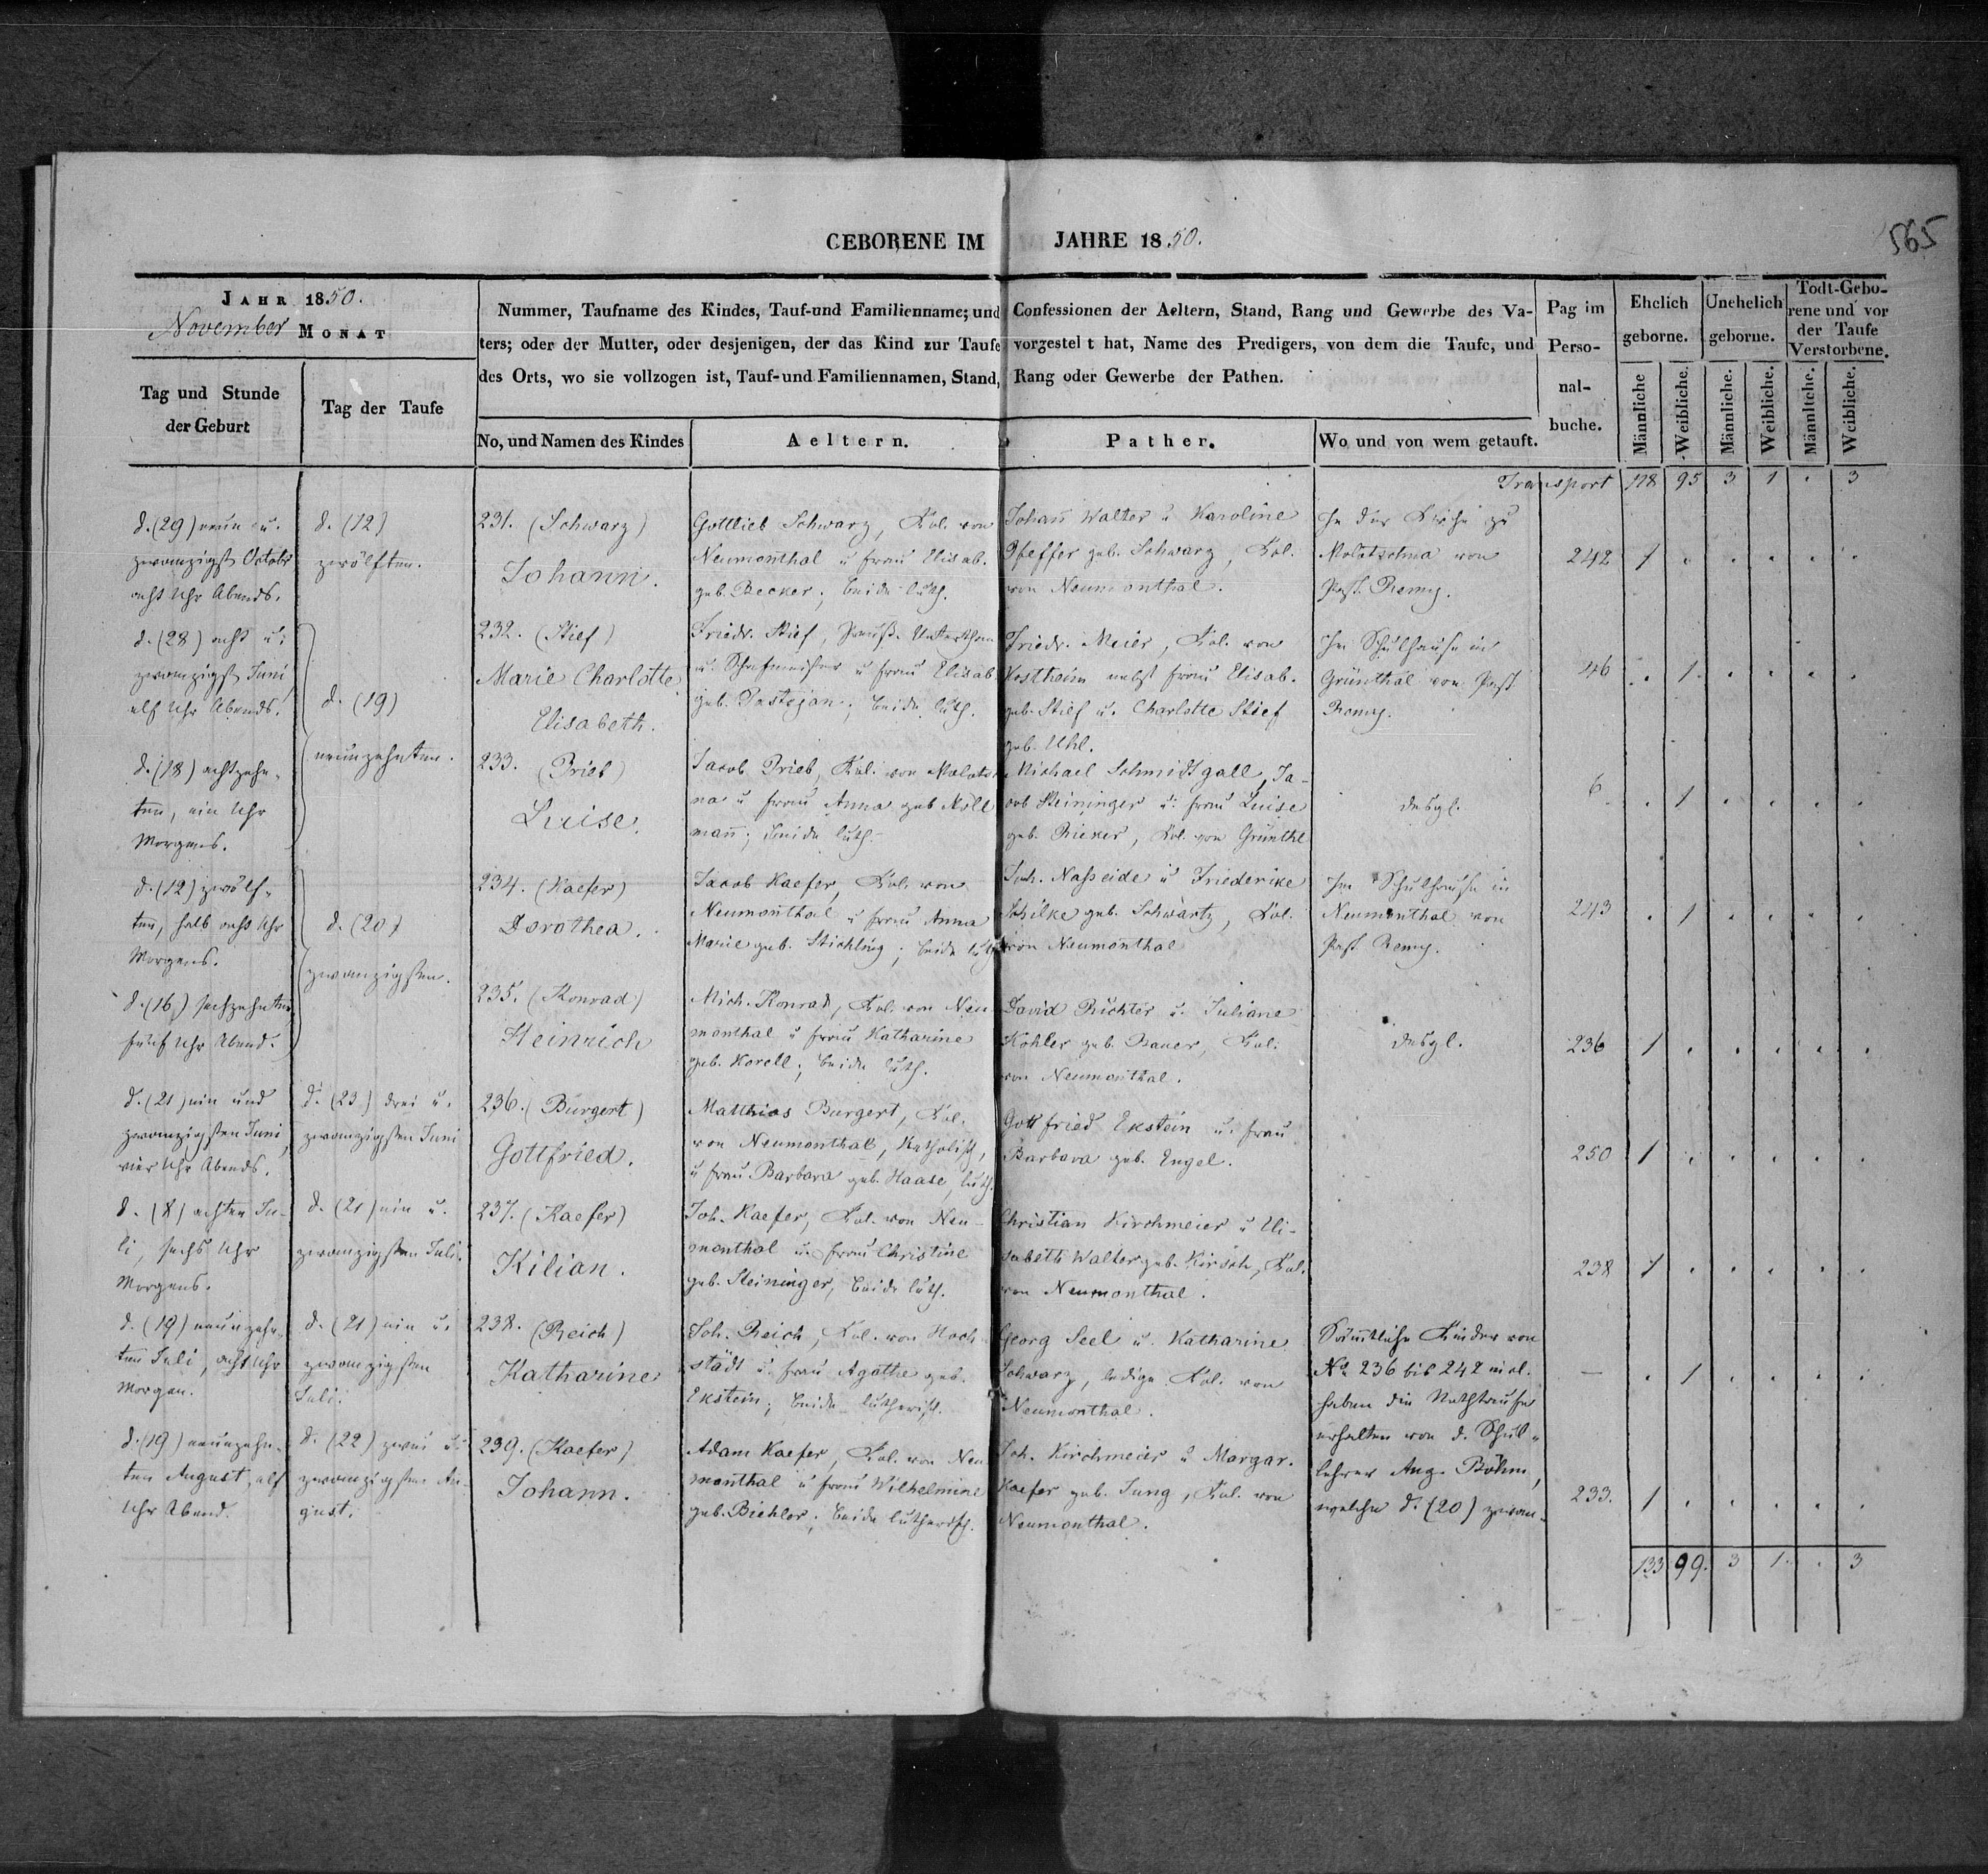 565
GEBORENE IM JAHRE 1850.
JAHR 1850.
November MONAT
Tag und Stunde
der Geburt
Tag der Taufe
Nummer, Taufname des Kindes, Tauf-und Familienname; und Confessionen der Aeltern, Stand, Rang und Gewerbe des Va-
ters; oder der Mutter, oder desjenigen, der das Kind zur Taufe vorgestellt hat, Name des Predigers, von dem die Taufe, und
des Orts, wo sie vollzogen ist, Tauf-und Familiennamen, Stand, Rang oder Gewerbe der Pathen.
No, und Namen des Kindes
Aeltern.
Pather.
Wo und von wem getauft.
Pag im
Perso-
nal-
buche.
Ehelich
geborne.
Unehelich
geborne.
Todt-Gebo-
rene und vor
der Taufe
Verstorbene.
Männliche
Weibliche.
Männliche.
Weibliche.
Männliche.
Weibliche.
Transport 128 95 3 1 . 3
d. (29) neun u.
zwanzigst October
acht Uhr Abends.
d. (12)
zwölften.
231. (Schwarz)
Johann.
Gottlieb Schwarz, Kol. von
Neumonthal u Frau Elisab.
geb. Becker; beide luth.
Johann Walter u Karoline
Pfeffer geb. Schwarz, Kol.
von Neumonthal.
In der Kirche zu
Molotschna von
Past. Remy.
242 1 . . . . .
d. (28) acht u.
zwanzigst Juni,
elf Uhr Abends.
d. (19)
neunzehnten.
232. (Stief)
Marie Charlotte
Elisabeth.
Friedr. Stief, Preuß. Unterthan
u. Schafmeister u Frau Elisab.
geb. Pastejan; beide luth.
Friedr. Meier, Kol. von
Kostheim nebst Frau Elisab.
geb. Stief u. Charlotte Stief
geb. Uhl.
Im Schulhause in
Grünthal von Past
Remy.
46 . 1 . . . .
d. (18) achtzehn-
ten, ein Uhr
Morgens.
233. (Prieb)
Luise.
Jacob Prieb, Kol. von
na u Frau Anna geb Nöll
mann; beide luth.
Michael Schmidtgall, Ja-
cob Steininger u. Frau Luise
geb. Rieker, Kol. von Grünthl
desgl.
6. . 1 . . . .
d. (12) zwölf-
ten, halb acht Uhr
Morgens.
d. (20)
zwanzigsten.
234. (Kaefer)
Dorothea.
Jacob Kaefer, Kol. von
Neumonthal u Frau Anna
Marie geb. Stichling; beide luth
Joh. Nasseide u Friederike
Schilke geb. Schwartz, Kol.
von Neumonthal
Im Schulhause in
Neumonthal von
Past Remy.
243 . 1 . . . .
d. (16) sechzehnten
fünf Uhr Abend.
235. (Konrad)
Heinrich
Mich. Konrad, Kol. von Neu-
monthal u Frau Katharine
geb. Korell; beide luth.
David Richter u. Juliane
Kohler geb. Bauer, Kol.
von Neumonthal.
desgl.
236 1 . . . . .
d. (21) ein und
zwanzigsten Juni,
vier Uhr Abends.
d. (23) drei u.
zwanzigsten Juni
236. (Burgert)
Gottfried.
Matthias Burgert, Kol.
von Neumonthal, Katholisch,
u Frau Barbara geb. Haase, luth.
Gottfried Ekstein u. Frau
Barbara geb. Engel.
250 1 . . . . .
d. (8) achten Ju-
li, sechs Uhr
Morgens.
d. (21) ein u.
zwanzigsten Juli.
237. (Kaefer)
Kilian.
Joh. Kaefer, Kol. von Neu-
monthal u. Frau Christine
geb. Steininger, beide luth.
Christian Kirchmeier u Eli-
sabeth Walter geb. Kirsch, Kol.
von Neumonthal.
238 1 . . . . .
d. (19) neunzehn-
ten Juli, acht Uhr
Morgen.
d. (21) ein u.
zwanzigsten
Juli.
238. (Reich)
Katharine
Joh. Reich, Kol. von Hoch-
städt u. Frau Agathe geb.
Ekstein; beide lutherisch.
Georg Seel u. Katharine
Schwarz, ledige Kol. von
Neumonthal.
Sämmtliche Kinder von
No 236 bis 242 incl.
haben die Nothtaufe
erhalten von d. Schul-
lehrer Aug. Böhm,
welche d. (20) zwan-
— . 1 . . . .
d. (19) neunzehn-
ten August, elf
Uhr Abend.
d. (22) zwei u.
zwanzigsten Au-
gust.
239. (Kaefer)
Johann.
Adam Kaefer, Kol. von Neu
monthal u Frau Wilhelmine
geb. Biehler; beide lutherisch.
Joh. Kirchmeier u Margar.
Kaefer geb. Jung, Kol. von
Neumonthal.
233. 1 . . . . .
133 99. 3 1. . 3